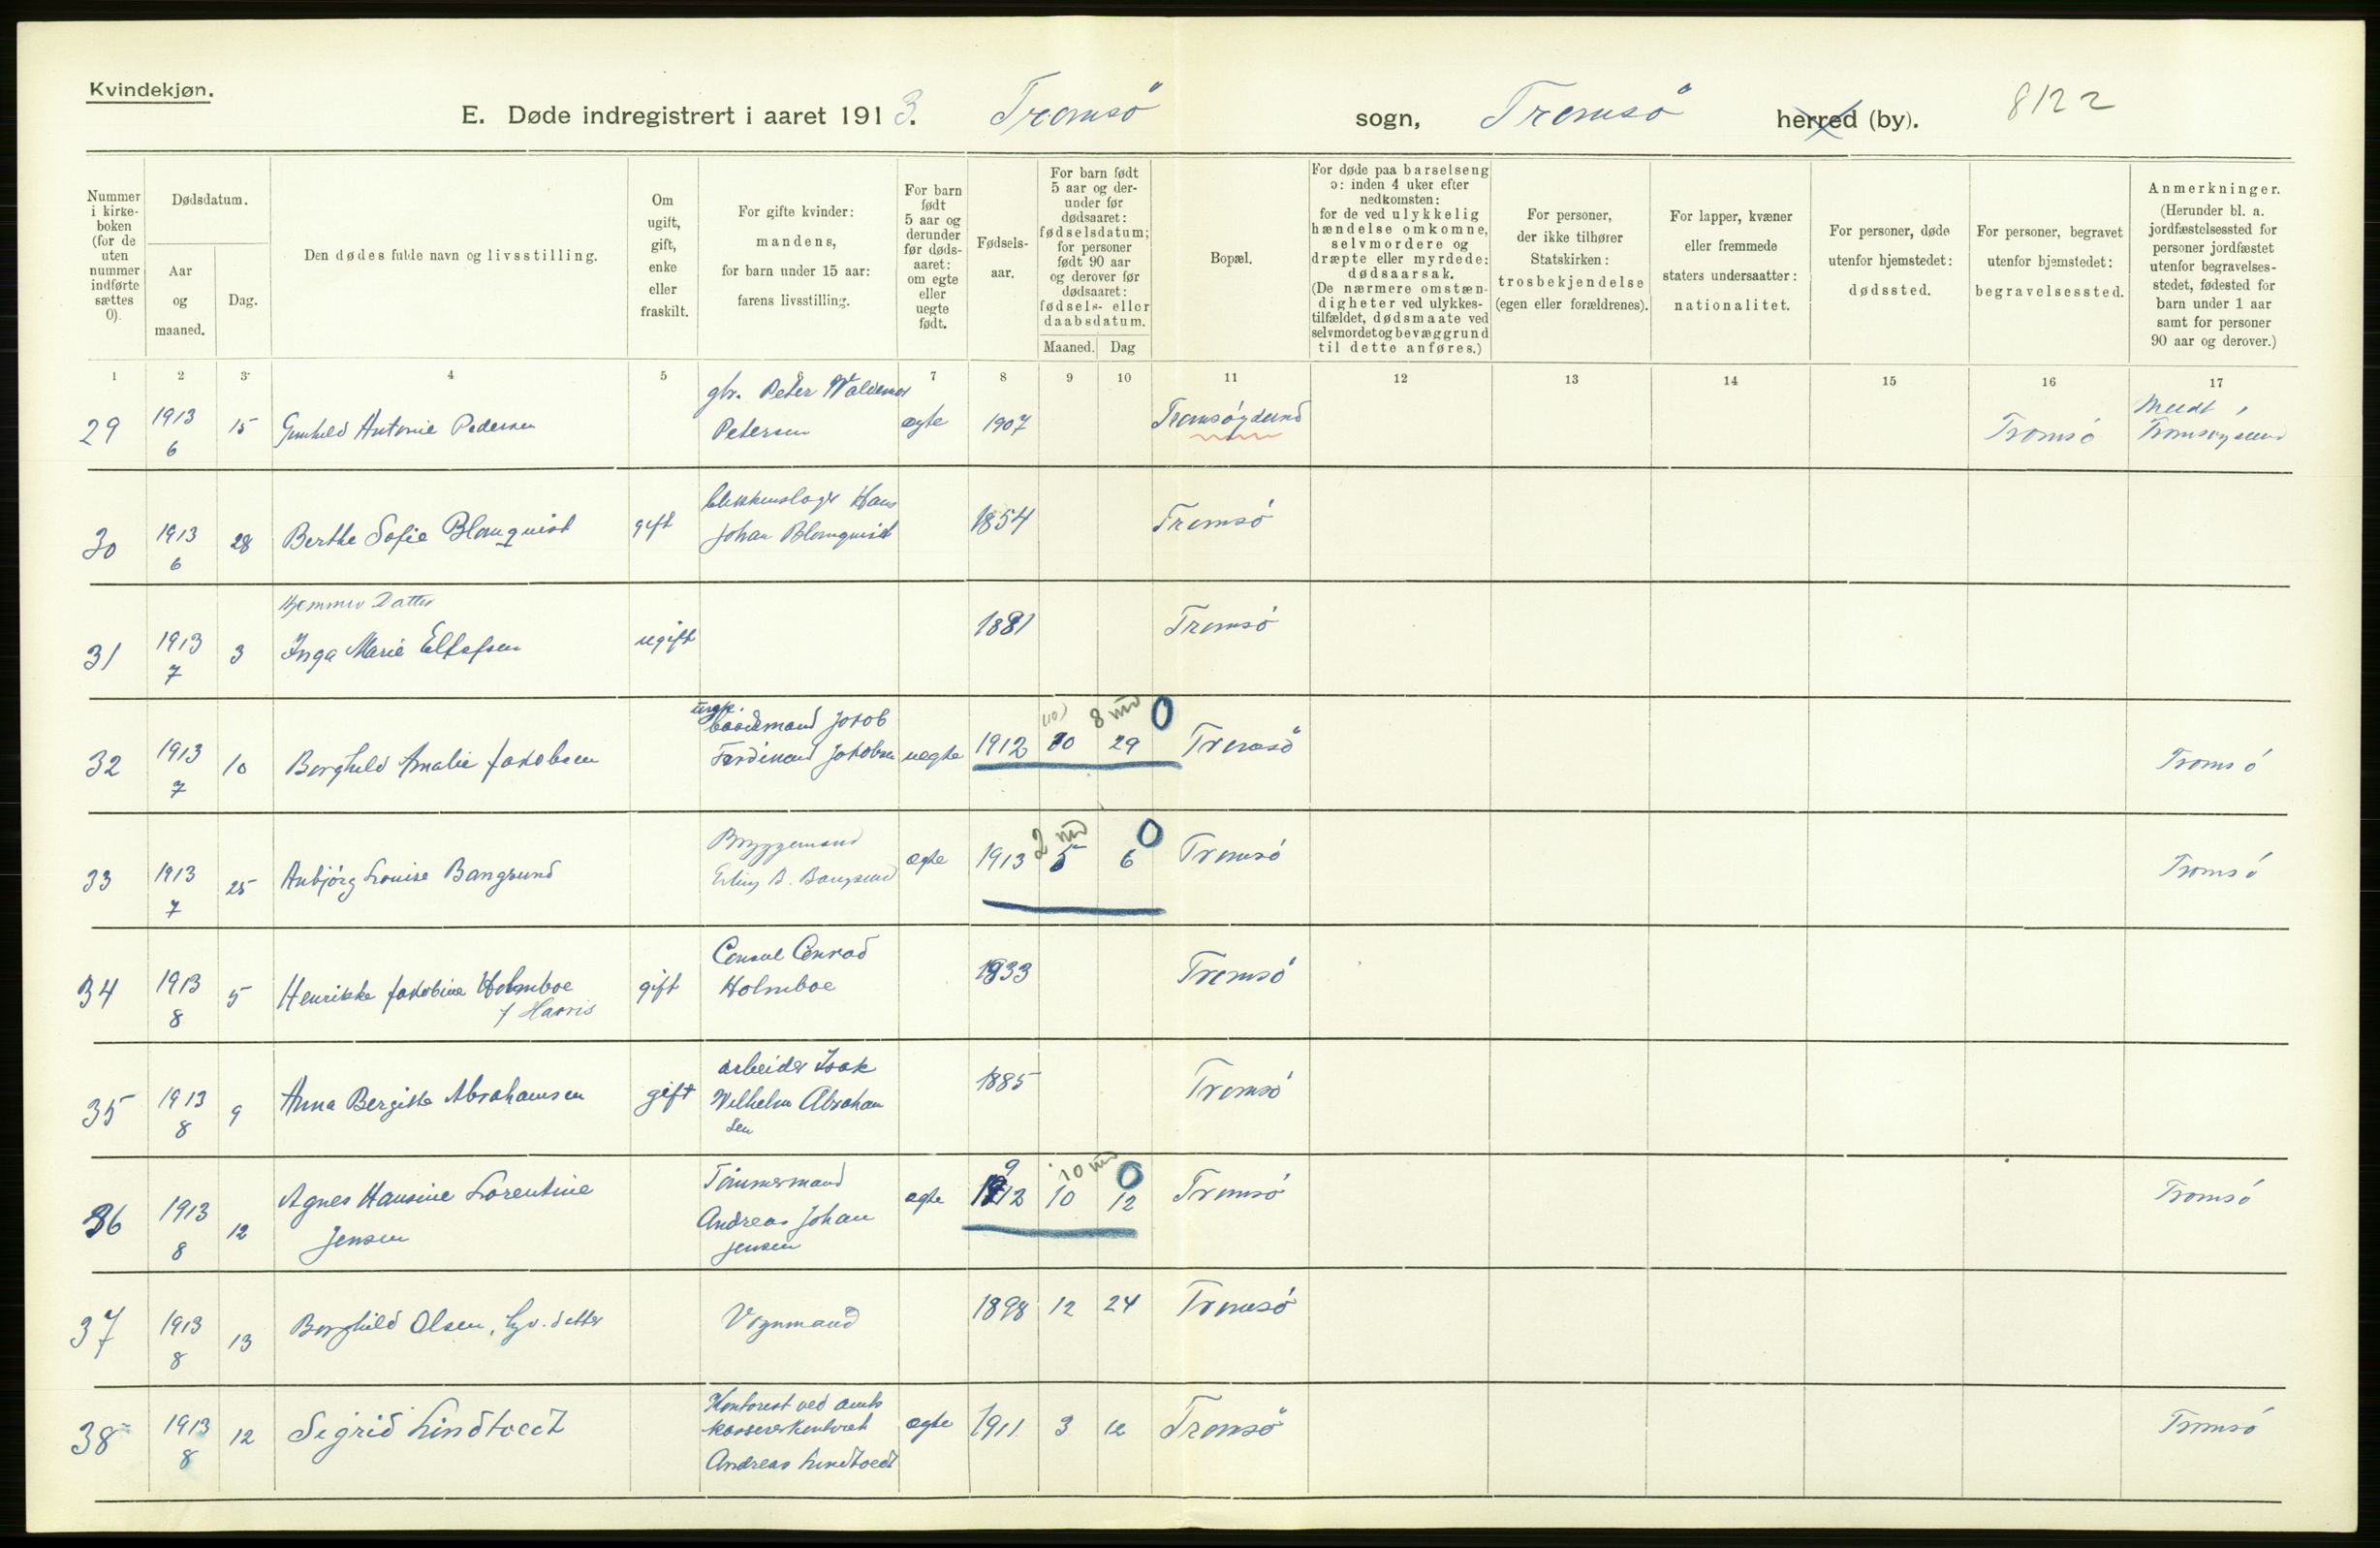 Kvindekjøn.
E. Døde indregistrert i aaret 1913. Tromsö sogn, Tromsö herred (by). 8122
Nummer i kirke-boken (for de uten nummer indførte sættes 0).
Dødsdatum.
Aar og maaned.
Dag.
Den dødes fulde navn og livsstilling.
Om ugift, gift, enke eller fraskilt.
For gifte kvinder: mandens, for barn under 15 aar: farens livsstilling.
For barn født 5 aar og derunder før døds-aaret: om egte eller uegte født.
Fødsels-aar.
For barn født 5 aar og der-under før dødsaaret: fødselsdatum; for personer født 90 aar og derover før dødsaaret: fødsels- eller daabsdatum.
Maaned. Dag
Bopæl.
For døde paa barselseng ɔ: inden 4 uker efter nedkomsten: for de ved ulykkelig hændelse omkomne, selvmordere og dræpte eller myrdede: dødsaarsak. (De nærmere omstæn-digheter ved ulykkes-tilfældet, dødsmaate ved selvmordet og bevæggrund til dette anføres.)
For personer, der ikke tilhører Statskirken: trosbekjendelse (egen eller forældrenes).
For lapper, kvæner eller fremmede staters undersaatter: nationalitet.
For personer, døde utenfor hjemstedet: dødssted.
For personer, begravet utenfor hjemstedet: begravelsessted.
Anmerkninger. (Herunder bl. a. jordfæstelsessted for personer jordfæstet utenfor begravelses-stedet, fødested for barn under 1 aar samt for personer 90 aar og derover.)
1 2 3 4 5 6 7 8 9 10 11 12 13 14 15 16 17
29 1913 6 15 Gunhild Antonie Pedersen gbr. Peter Waldemar Petersen egte 1907 Tromsøysund Tromsö Tromsøysund
30 1913 6 28 Berthe Sofie Blomquist gift blikkenslager Hans Johan Blomquist 1854 Tromsö
31 1913 7 3 Hjemmev. Datter Inga Marie ugift 1881 Tromsö
32 1913 7 10 Borghild Amalie Jakobsen ungk. baadsmand Jakob Ferdinand Jakobsen uegte 1912 10 29 (10) 8 md 0 Tromsö Tromsö
33 1913 7 25 Anbjörg Louise Bangsund Bryggemand Erling B. Bangsund egte 1913 5 6 2 md 0 Tromsö Tromsö
34 1913 8 5 Henrikke Jakobine Holmboe f Harris gift Consul Conrad Holmboe 1833 Tromsö
35 1913 8 9 Anna Bergitte Abrahamsen gift arbeider Isak Wilhelm Abrahamsen 1885 Tromsö
36 1913 8 12 Agnes Hansine Lorentine Jensen Tömmermand Andreas Johan Jensen egte 1912 9 10 12 10 md 0 Tromsö Tromsö
37 1913 8 13 Borghild Olsen, hjv. datter Vognmand 1898 12 24 Tromsö
38 1913 8 12 Sigrid Lindtvedt Kontorist ved amtskassererkontoret Andreas Lindtvedt egte 1911 3 12 Tromsö Tromsö